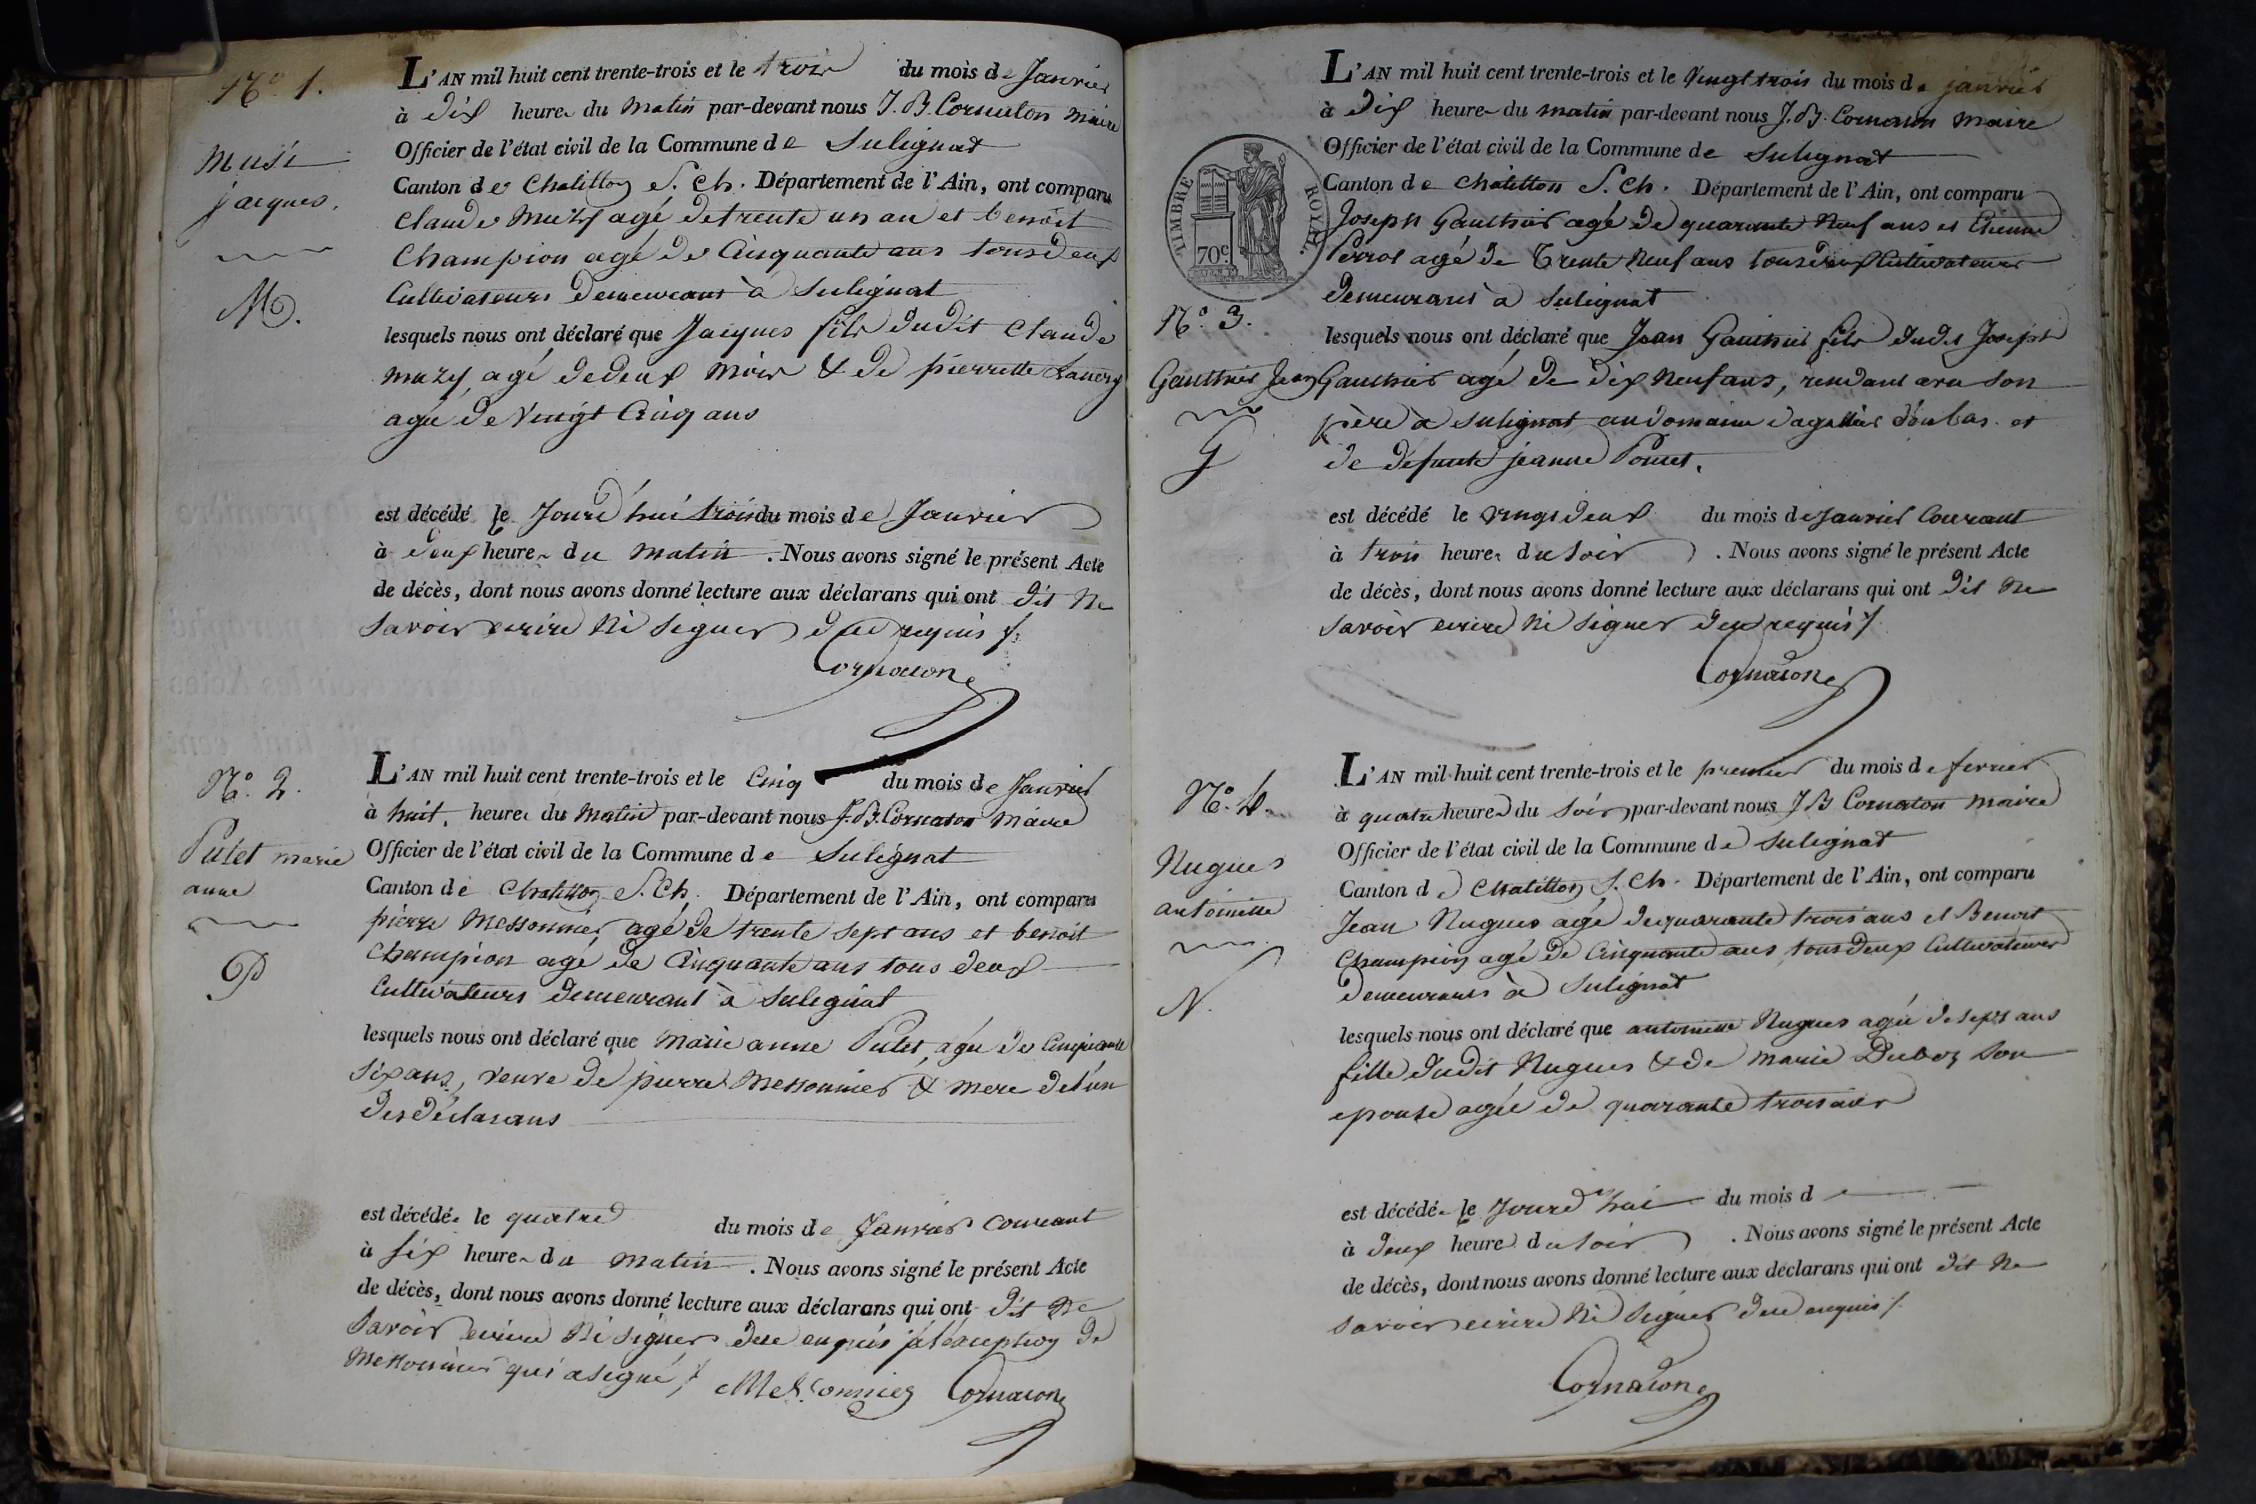 N.° 1.
Musi
jacques.
M.
L'AN mil huit cent trente-trois et le trois du mois de Janvier
à dix heures du matin par-devant nous J. B. Cornaton maire
Officier de l'état civil de la Commune de Sulignat
Canton de Chatillon S. Ch. Département de l'Ain, ont comparu
Claude Muzy agé de trente un an et benoit
Champion agé de Cinquante ans tous deux
Cultivateurs demeurant à Sulignat
lesquels nous ont déclaré que Jacques fils dudit Claude
muzy agé de deux mois & de pierrette
agée de Vingt Cinq ans
est décédé le Jourd'hui trois du mois de Janvier
à deux heures du matin . Nous avons signé le présent Acte
de décès, dont nous avons donné lecture aux déclarans qui ont dit ne
savoir ecrire Ni signer de ce requis
Cornaton
N.° 2.
Putet marie
anne
P
L'AN mil huit cent trente-trois et le Cinq du mois de Janvier
à huit heures du matin par-devant nous J. B. Cornaton maire
Officier de l'état civil de la Commune de Sulignat
Canton de Chatillon S. Ch. Département de l'Ain, ont comparu
pierre Messonnier agé de trente sept ans et benoit
Champion agé de Cinquante ans tous deux
Cultivateurs demeurant à Sulignat
lesquels nous ont déclaré que marie anne Putet, agée de Cinquante
six ans, veuve de pierre Messonnier & mere de l'un
des déclarans
est décédée le quatre du mois de Janvier courant
à six heures du matin . Nous avons signé le présent Acte
de décès, dont nous avons donné lecture aux déclarans qui ont dit ne
savoir ecrire Ni signer de ce enquis à l'exception de
Messonnier qui a signé
Messonnier Cornaton
TIMBRE ROYAL
70c
N.° 3.
Gauthier Jean
G
L'AN mil huit cent trente-trois et le vingt trois du mois de janvier
à dix heures du matin par-devant nous J. B. Cornaton maire
Officier de l'état civil de la Commune de Sulignat
Canton de Châtillon S. Ch. Département de l'Ain, ont comparu
Joseph Gauthier agé de quarante Neuf ans et Etienne
Perrol agé de Trente Neuf ans tous deux Cultivateurs
demeurans à Sulignat
lesquels nous ont déclaré que Jean Gauthier fils dudit Joseph
Gauthier agé de dix Neuf ans, avec son
père à Sulignat au domaine d'en bas et
de defunte jeanne Poncet.
est décédé le vingt deux du mois de Janvier Courant
à trois heures du soir . Nous avons signé le présent Acte
de décès, dont nous avons donné lecture aux déclarans qui ont dit ne
savoir ecrire Ni signer de ce requis
Cornaton
N.° 4.
Nugues
antoinette
N.
L'AN mil huit cent trente-trois et le premier du mois de fevrier
à quatre heures du soir par-devant nous J B Cornaton maire
Officier de l'état civil de la Commune de Sulignat
Canton de Chatillon S. Ch. Département de l'Ain, ont comparu
Jean Nugues agé de quarante trois ans et Benoit
Champion agé de Cinquante ans tous deux Cultivateurs
demeurants à Sulignat
lesquels nous ont déclaré que antoinette Nugues agée de sept ans
fille dudit Nugues & de marie Duboz son
epouse agée de quarante trois ans
est décédée le Jourd'hui du mois d
à deux heures du soir . Nous avons signé le présent Acte
de décès, dont nous avons donné lecture aux déclarans qui ont dit ne
savoir ecrire Ni signer de ce enquis
Cornaton